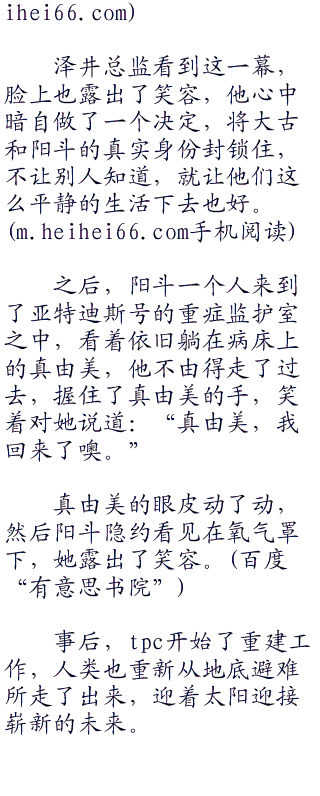 ihei66.com)
泽井总监看到这一幕，
脸上也露出了笑容，他心中
暗自做了一个决定，将大古
和阳斗的真实身份封锁住，
不让别人知道，就让他们这
么平静的生活下去也好。
(m.heihei66.com手机阅读)
之后，阳斗一个人来到
了亚特迪斯号的重症监护室
之中，看着依旧躺在病床上
的真由美，他不由得走了过
去，握住了真由美的手，笑
着对她说道：“真由美，我
回来了噢。”
真由美的眼皮动了动，
然后阳斗隐约看见在氧气罩
下，她露出了笑容。(百度
“有意思书院”)
事后，tpc开始了重建工
作，人类也重新从地底避难
所走了出来，迎着太阳迎接
崭新的未来。